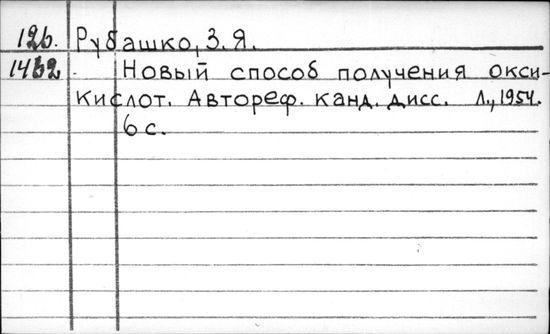 126. Рубашко, З. Я.
1462 Новый способ получения окси-
кислот. Автореф. канд. дисс. Л., 1954.
6 с.